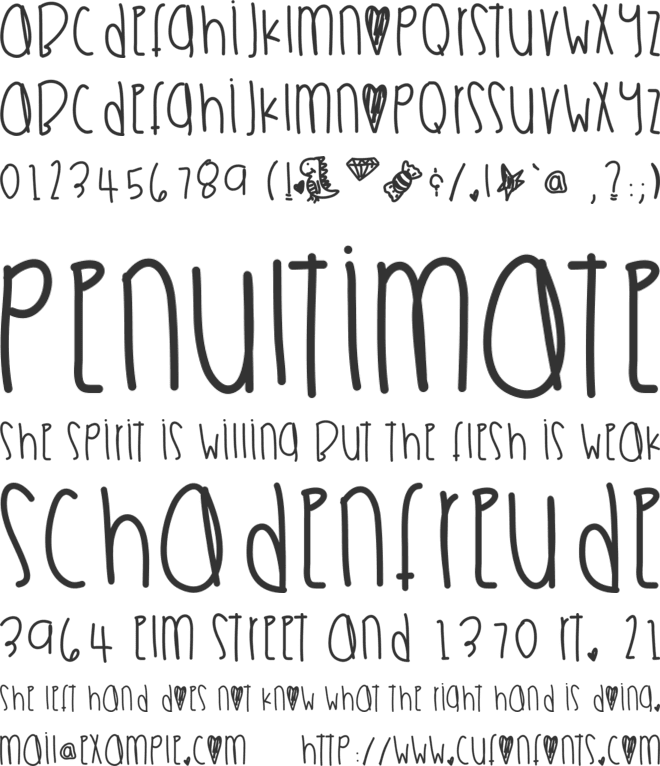 aBcdefghijklmnopqrstuvwxyz
aBcdefghijklmnopqrssuvwxyz
0123456789 (! ¢/.|`@ ,?:;)
penultimate
she spirit is willing But the flesh is weak
schadenfreude
3964 elm street and 1370 rt. 21
she left hand does not know what the right hand is doing.
mail@example.com http://www.cufonfonts.com